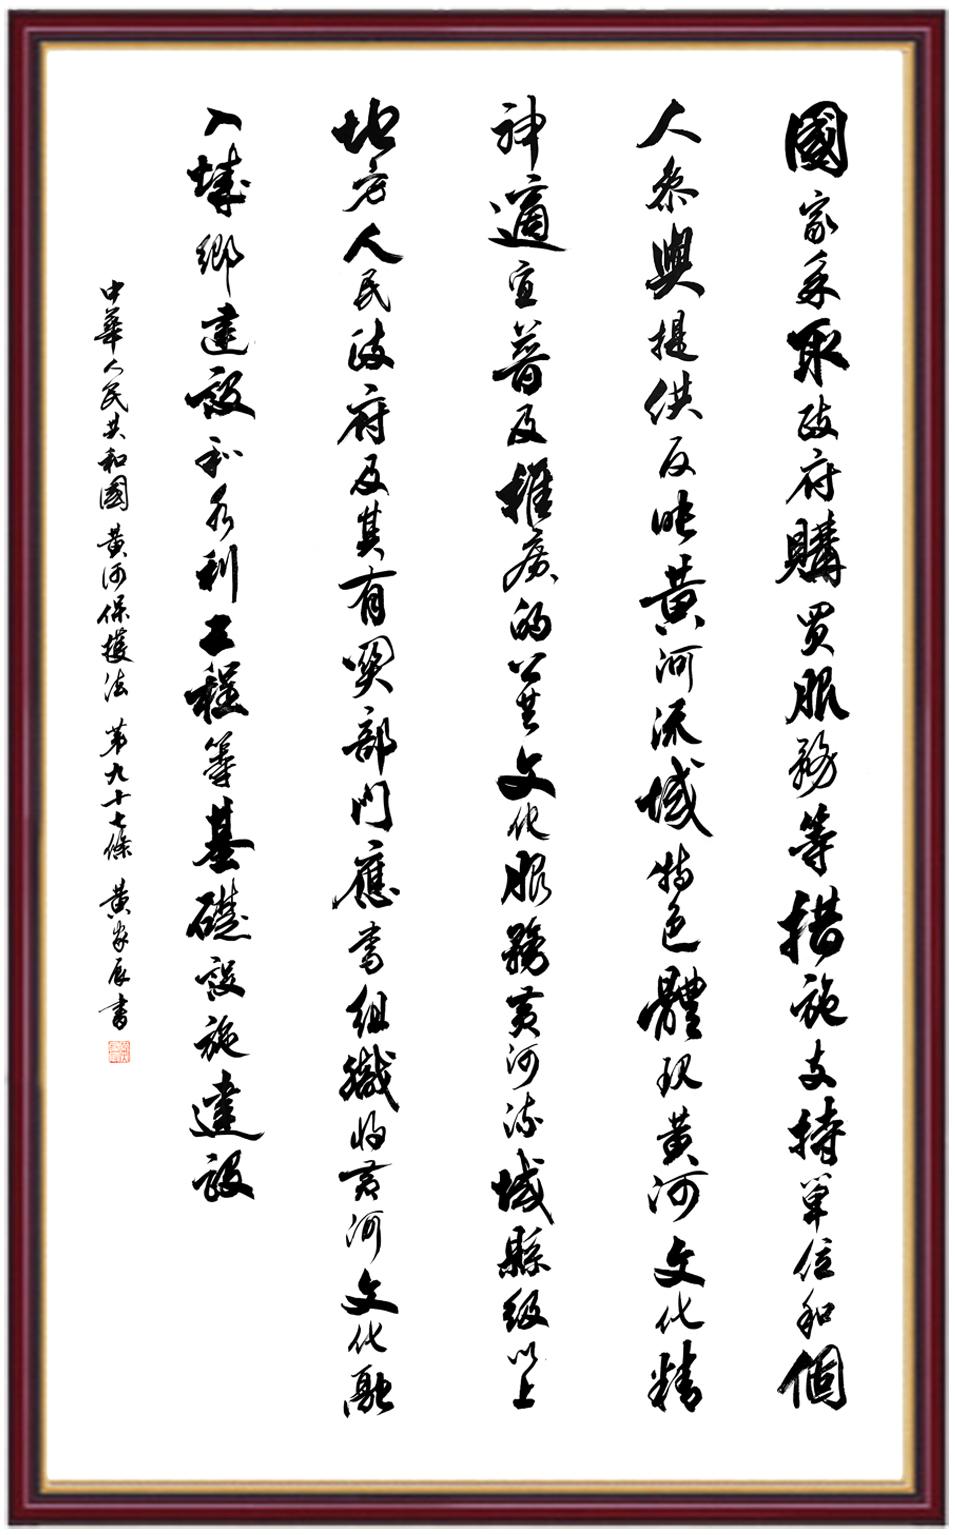 國家采取政府購買服務等措施支持單位和個
人參與提供反映黃河流域特色體現黃河文化精
神適宜普及推廣的公共文化服務黃河流域縣級以上
地方人民政府及其有關部門應當組織將黃河文化融
入城鄉建設和水利工程等基礎設施建設
中華人民共和國黃河保護法 第九十七條 黃家辰書